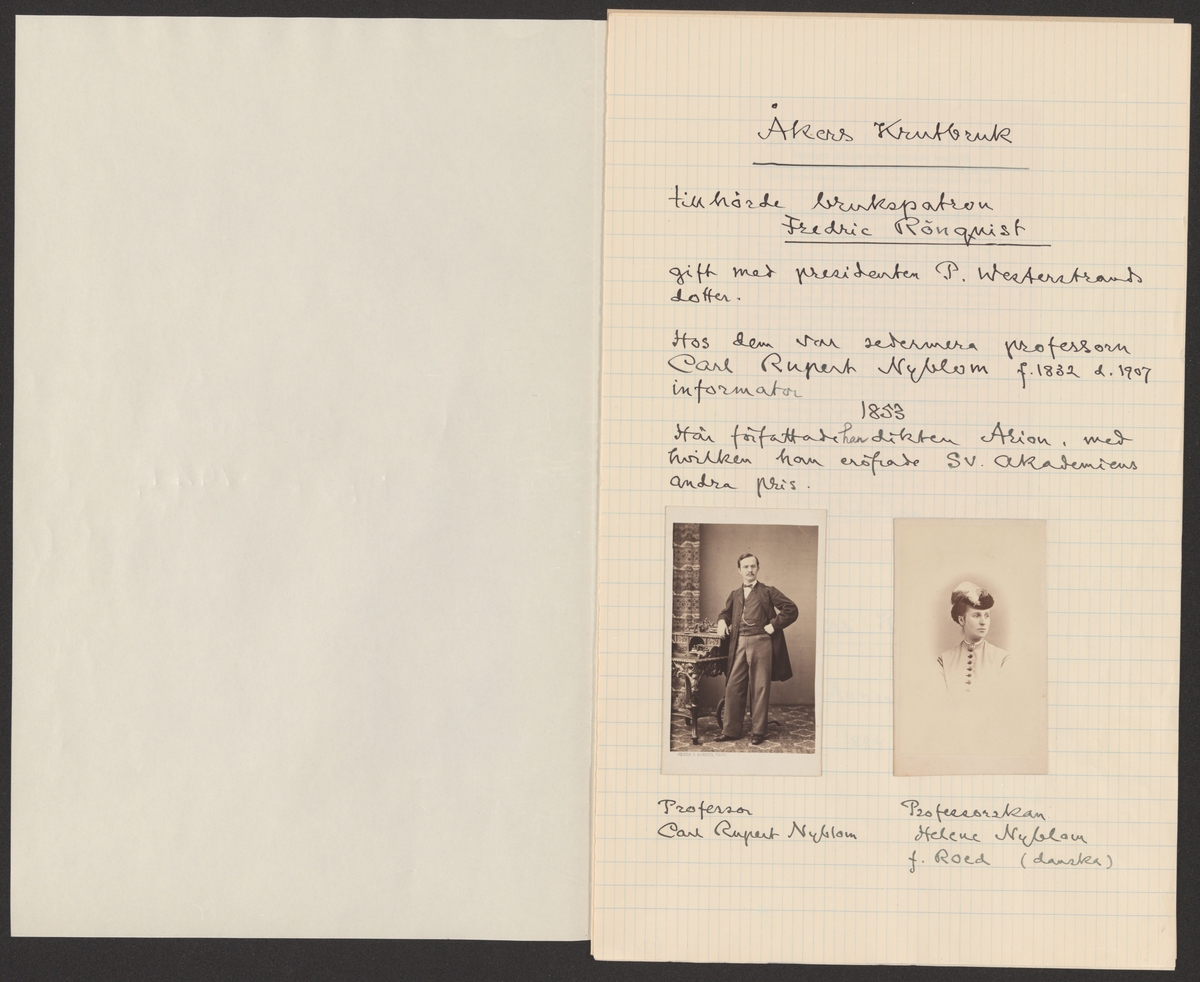 Åkers Krutbruk
tillhörde brukspatron
Fredric Rönquist
gift med presidenten P. Westerstrands
dotter.
Hos dem var sedermera professorn
Carl Rupert Nyblom f. 1832 d. 1907
informator
1853
Här författade han dikten Arion, med
hvilken han eröfrade Sv. Akademiens
andra pris.
Professor
Carl Rupert Nyblom
Professorskan
Helene Nyblom
f. Roed (danska)